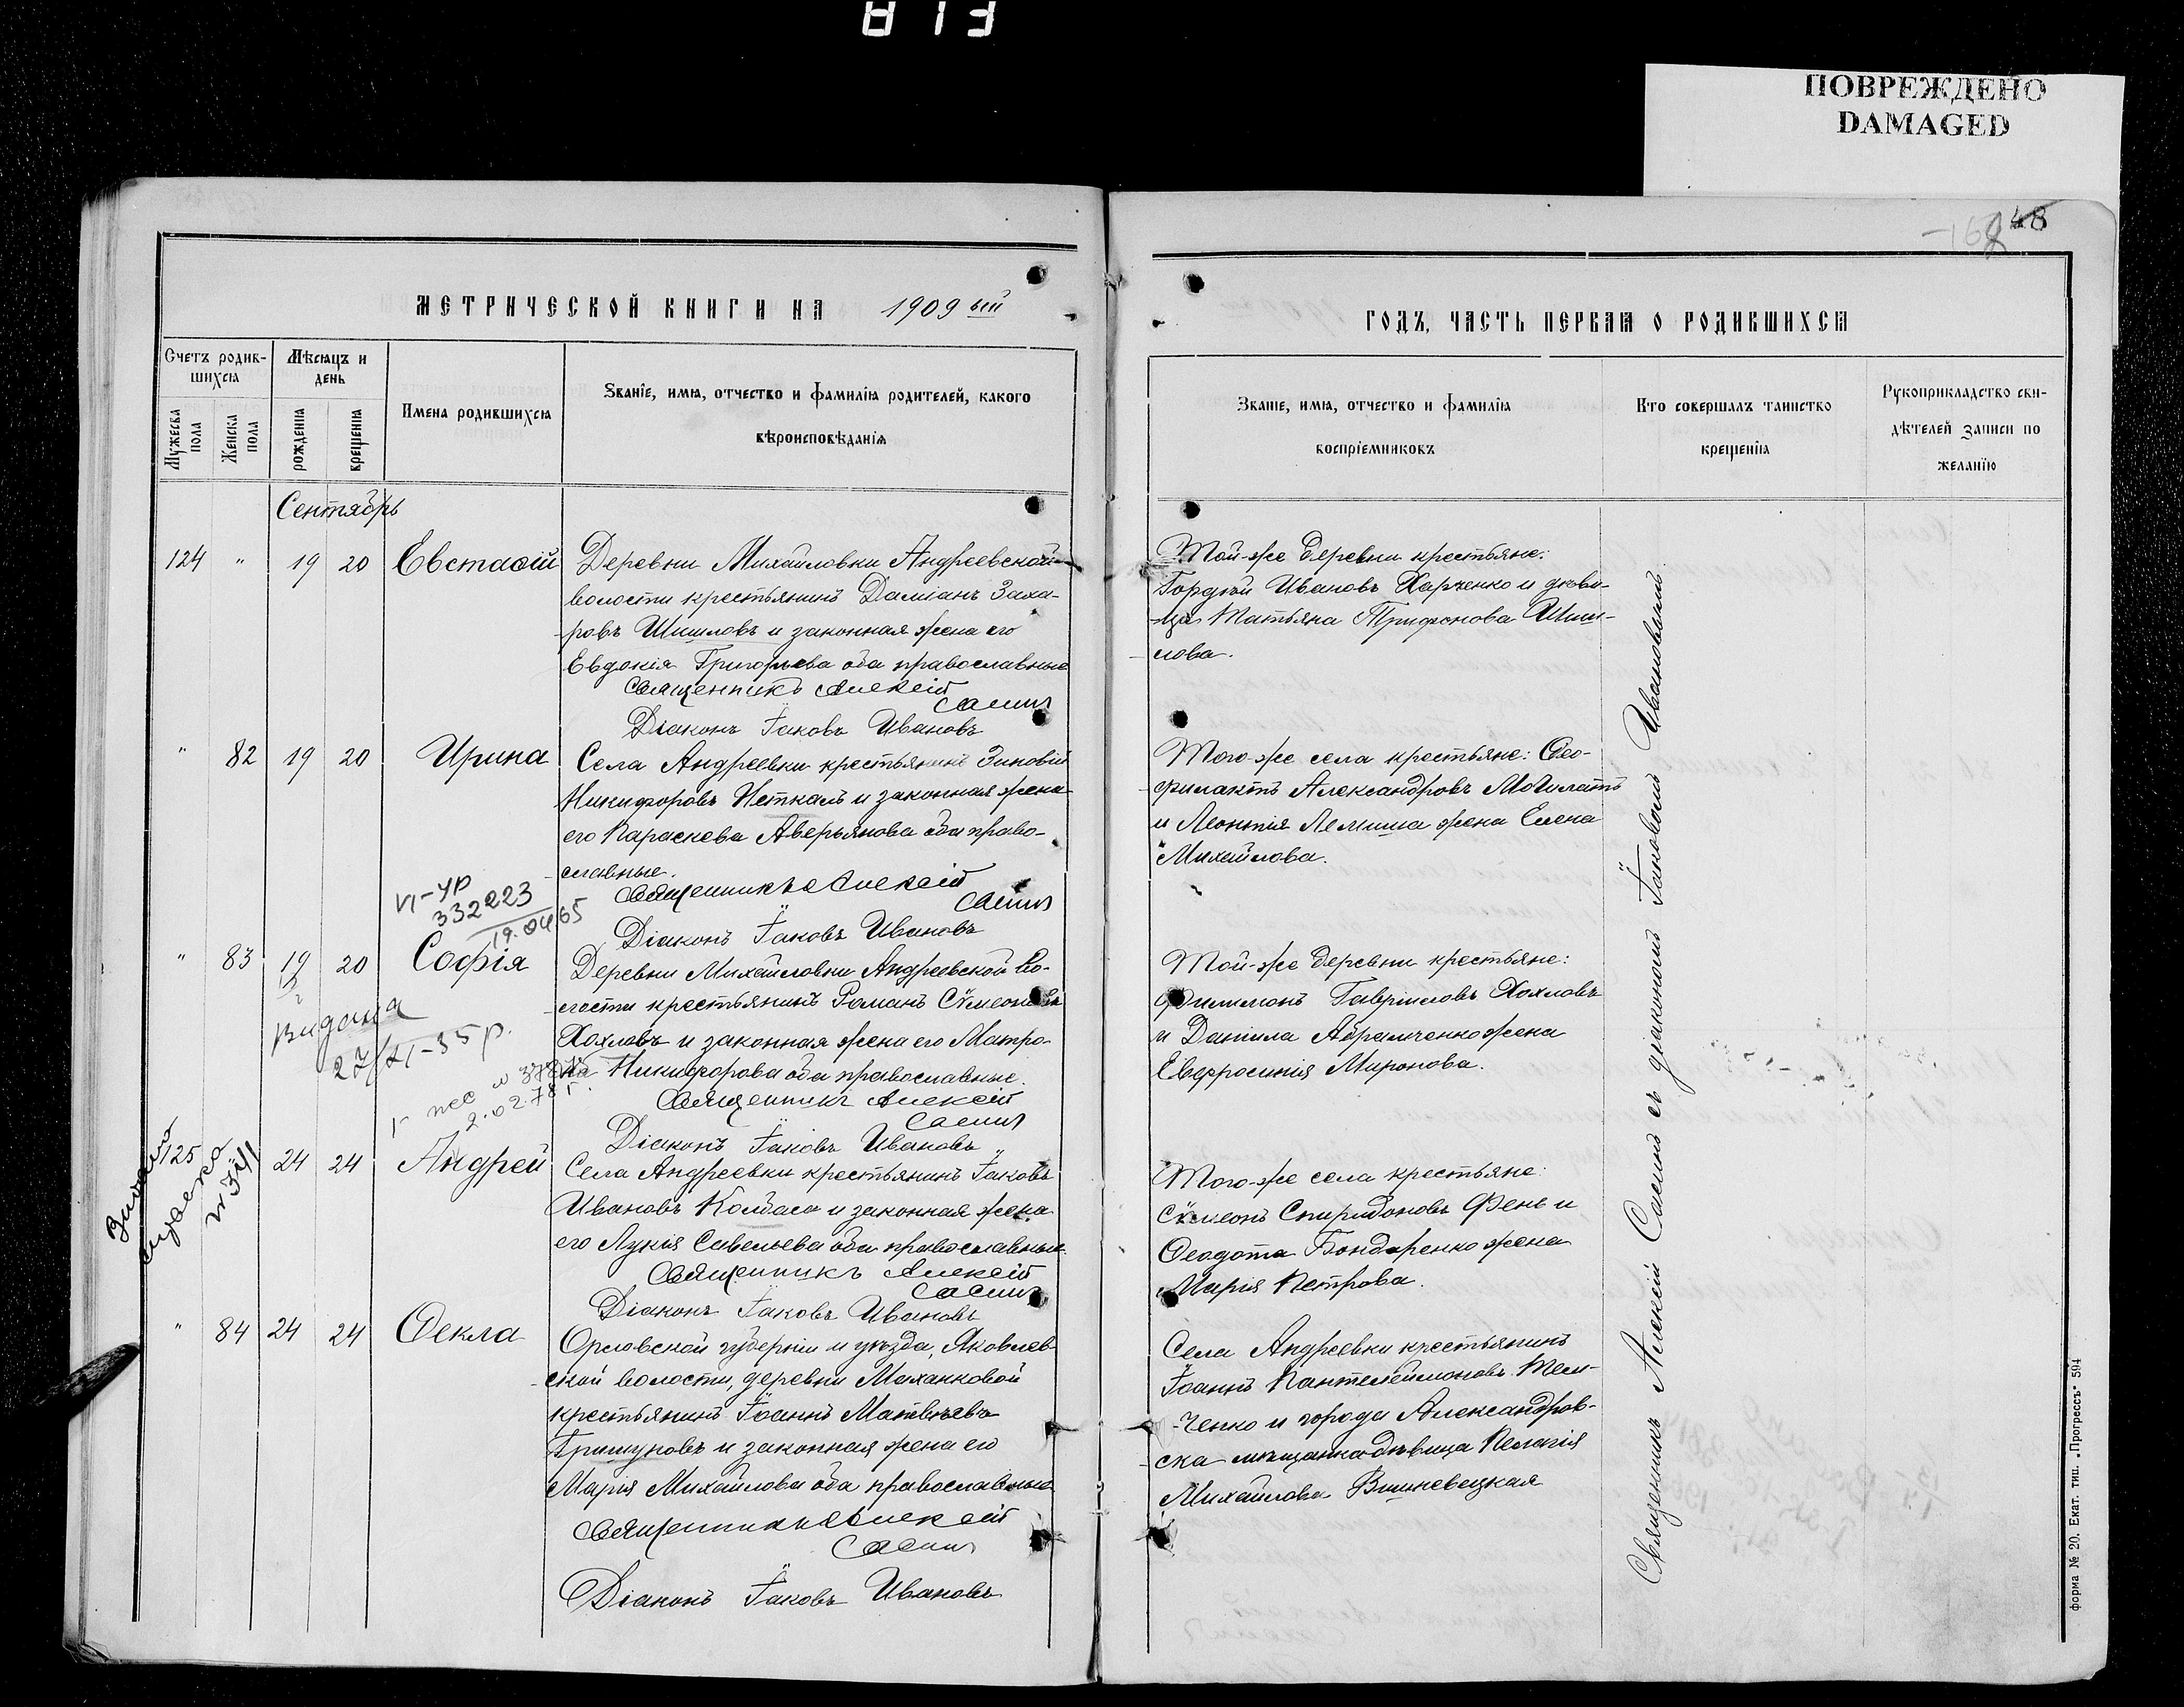 813
ПОВРЕЖДЕНО
DAMAGED
48
МЕТРИЧЕСКОЙ КНИГИ НА 1909 ый
Счетъ родив-
шихся
Мѣсяцъ и
день
Мужеска
пола
Женска
пола
рожденія
крещенія
Имена родившихся
Званіе, имя, отчество и фамилія родителей, какого
вѣроисповѣданія
Сентябрь
124 " 19 20 Евстафій
Деревни Михайловки Андреевской
волости крестьянинъ Даміанъ Заха-
ровъ Шишловъ и законная жена его
Евдокія Григорьева оба православные
Священникъ Алексій
Саенъ
Діаконъ Іаковъ Ивановъ
" 82 19 20 Ирина
Села Андреевки крестьянинъ Зиновій
Никифоровъ Неткалъ и законная жена
его Параскева Аверьянова оба право-
славные.
Священникъ Алексій
Саенъ
Діаконъ Іаковъ Ивановъ
VI-УР
332223
19.04.65
" 83 19 20 Софія
Деревни Михайловки Андреевской во-
лости крестьянинъ Романъ Сѵмеоновъ
Хохловъ и законная жена его Матро-
на Никифорова оба православные.
Священникъ Алексій
Саенъ
Діаконъ Іаковъ Ивановъ
видана
27/XI-35 р.
2.02.78 г.
125 24 24 Андрей
Села Андреевки крестьянинъ Іаковъ
Ивановъ Колбаса и законная жена
его Лукія Савельева оба православные.
Священникъ Алексій
Саенъ
Діаконъ Іаковъ Ивановъ
" 84 24 24 Ѳекла
Орловской губерніи и уѣзда, Яковлев-
ской волости, деревни Маханковой
крестьянинъ Іоаннъ Матвѣевъ
Гришуновъ и законная жена его
Марія Михайлова оба православные
Священникъ Алексій
Саенъ
Діаконъ Іаковъ Ивановъ
ГОДЪ, ЧАСТЬ ПЕРВАЯ О РОДИВШИХСЯ
Званіе, имя, отчество и фамилія
воспріемниковъ
Кто совершалъ таинство
крещенія
Рукоприкладство сви-
дѣтелей записи по
желанію
Той-же деревни крестьяне:
Гордѣй Ивановъ Харченко и дѣви-
ца Татьяна Трифонова Шиш-
лова.
Того-же села крестьяне: Ѳео-
филактъ Александровъ Мовилатъ
и Леонтія Лемиша жена Елена
Михайлова.
Той-же деревни крестьяне:
Филимонъ Гавріиловъ Хохловъ
и Даніила Абрамченко жена
Евфросинія Миронова.
Того-же села крестьяне:
Сѵмеонъ Спиридоновъ Фень и
Ѳеодота Бондаренко жена
Марія Петрова.
Села Андреевки крестьянинъ
Іоаннъ Пантелеймоновъ Тем-
ченко и города Александров-
ска мѣщанка дѣвица Пелагія
Михайлова Вишневецкая
Священникъ Алексій Саенъ съ діакономъ Іаковомъ Ивановымъ
форма № 20. Екат. тип. „Прогрессъ" 594